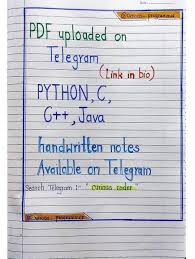 PDF uploaded on
Telegram
(Link in bio)
PYTHON, C,
C++, Java
handwritten notes
Available on Telegram
Search Telegram :- "curious coder"